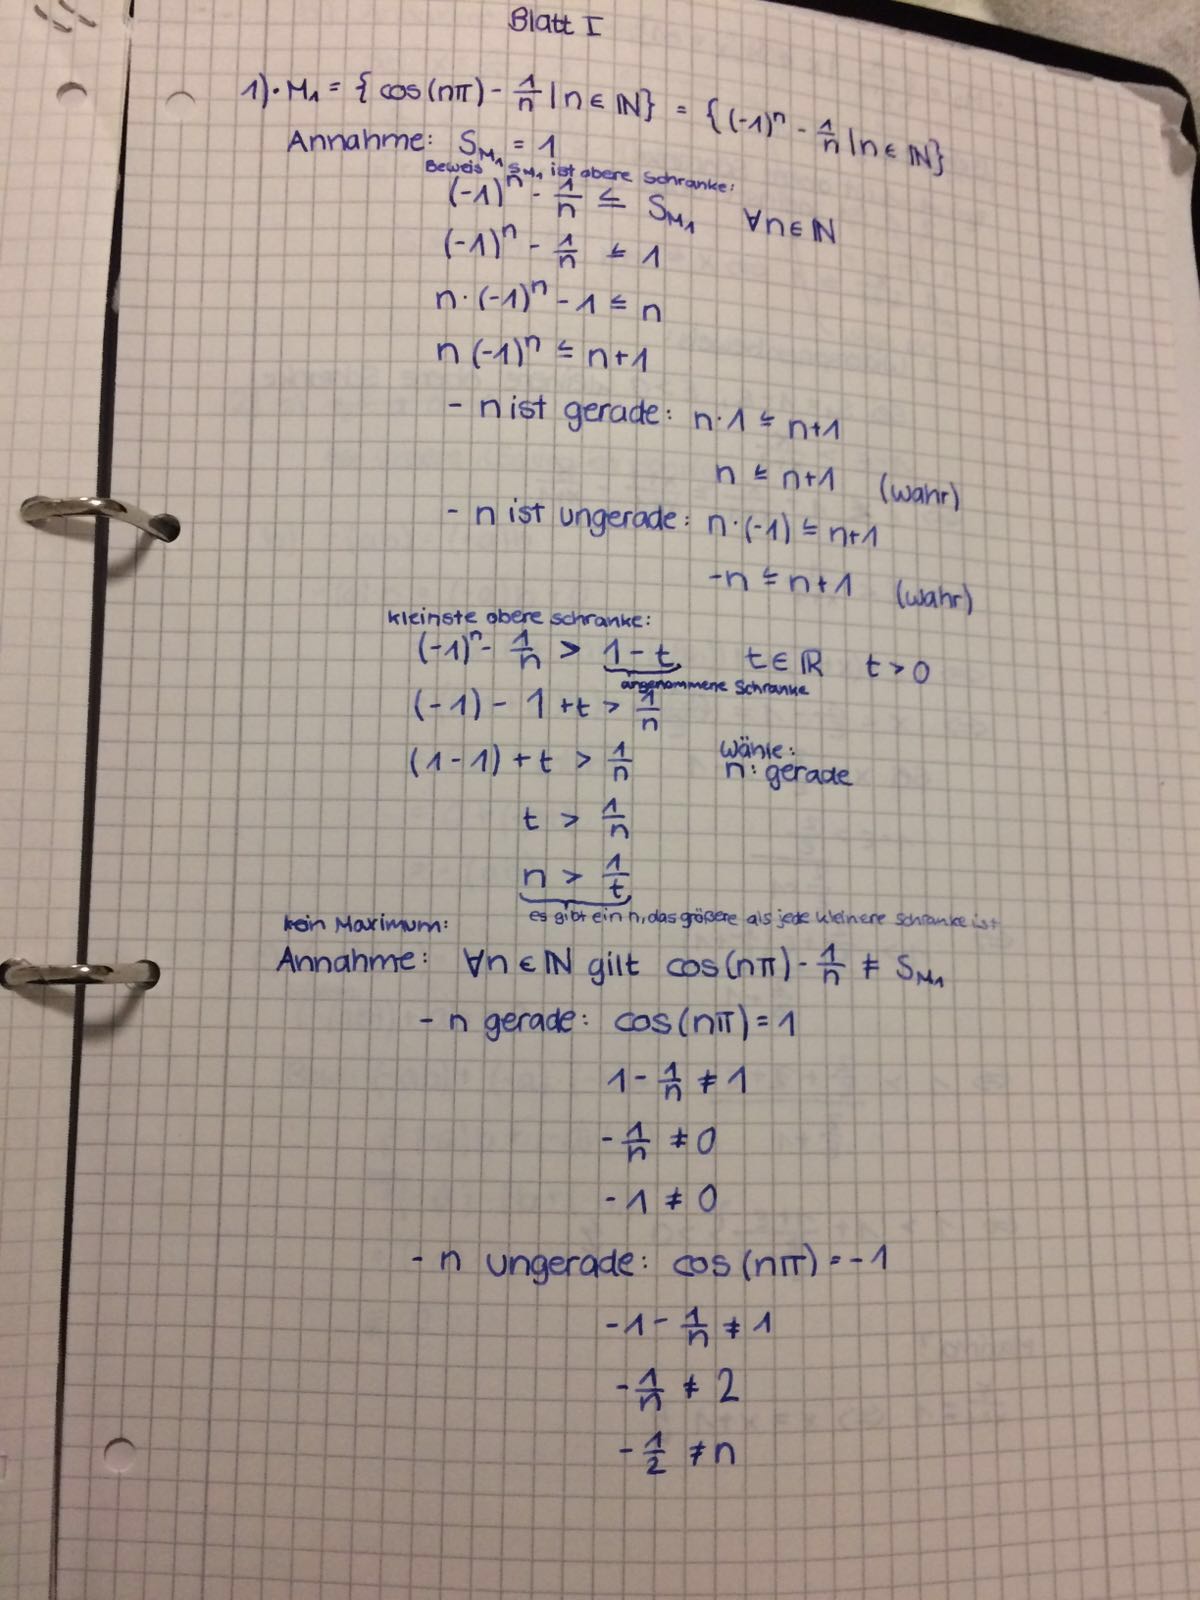 Blatt I
1)• M₁ = { cos(nπ) - 1/n | n ∈ ℕ} = {(-1)ⁿ - 1/n | n ∈ ℕ}
Annahme: S_M₁ = 1
Beweis S_M₁ ist obere Schranke:
(-1)ⁿ - 1/n ≤ S_M₁ ∀n∈ℕ
(-1)ⁿ - 1/n ≤ 1
n·(-1)ⁿ - 1 ≤ n
n(-1)ⁿ ≤ n+1
- n ist gerade: n·1 ≤ n+1
n ≤ n+1 (wahr)
- n ist ungerade: n·(-1) ≤ n+1
-n ≤ n+1 (wahr)
kleinste obere schranke:
(-1)ⁿ - 1/n > 1-t t∈ℝ t>0
angenommene Schranke
(-1) - 1 +t > 1/n
(1-1) + t > 1/n Wähle:
n: gerade
t > 1/n
n > 1/t
es gibt ein n, das größere als jede kleinere Schranke ist
kein Maximum:
Annahme: ∀n∈ℕ gilt cos(nπ) - 1/n ≠ S_M₁
- n gerade: cos(nπ) = 1
1 - 1/n ≠ 1
- 1/n ≠ 0
- 1 ≠ 0
- n ungerade: cos(nπ) = -1
-1 - 1/n ≠ 1
- 1/n ≠ 2
- 1/2 ≠ n